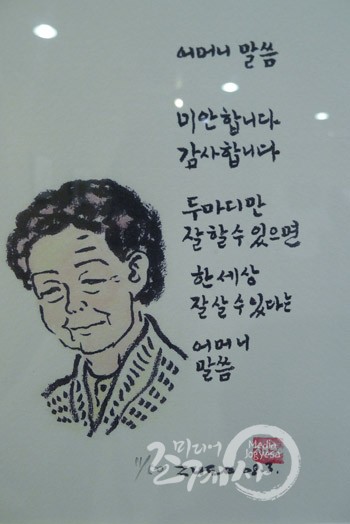 어머니 말씀
미안합니다
감사합니다
두마디만
잘 할 수 있으면
한 세상
잘 살 수 있다는
어머니
말씀
미디어
조계사
Media
Jogyesa